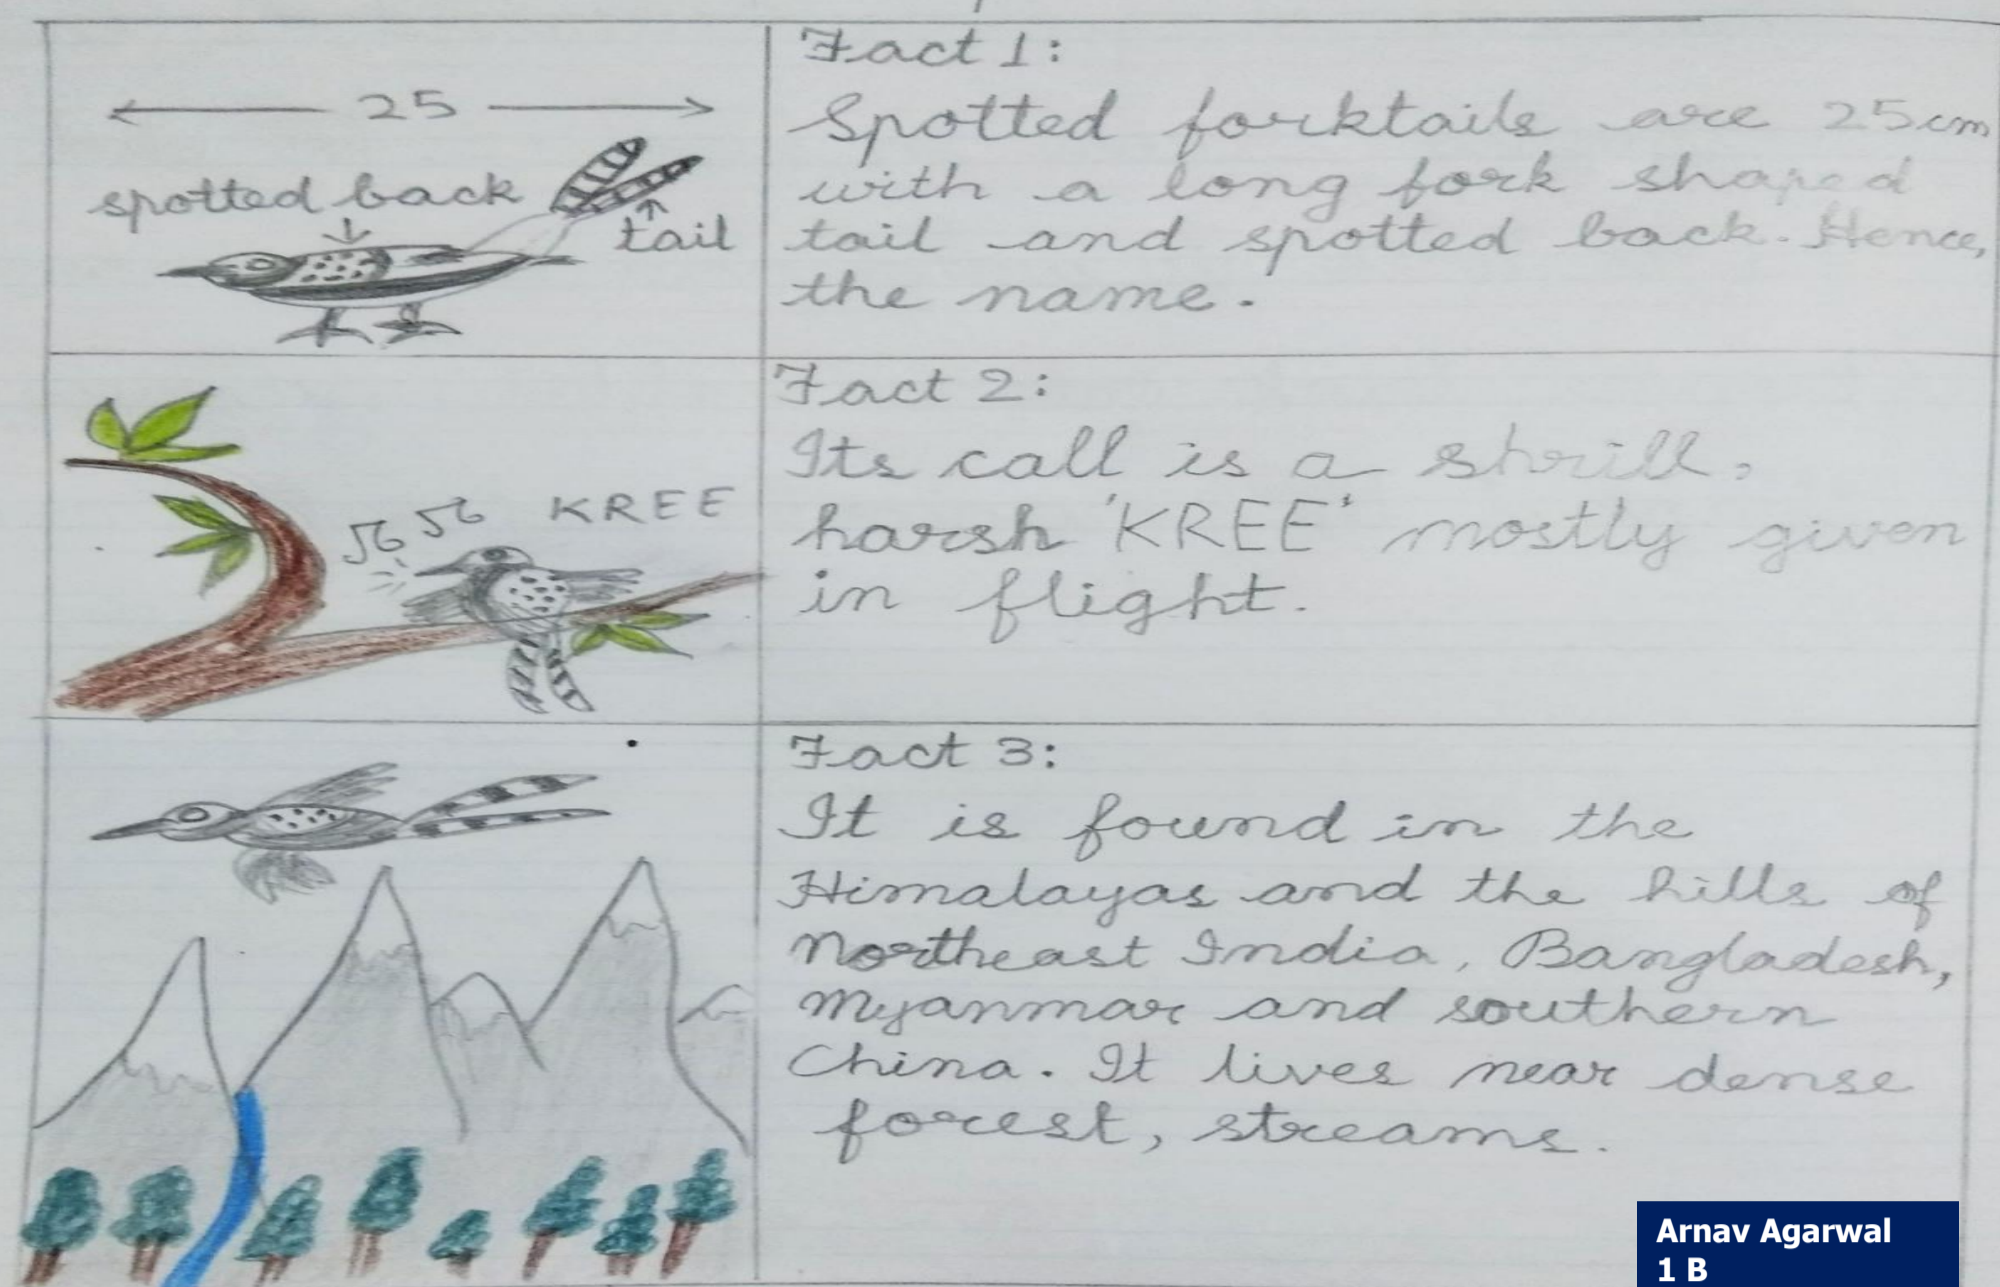 25
spotted back
tail
Fact 1:
Spotted forktails are 25cm
with a long fork shaped
tail and spotted back. Hence,
the name.
KREE
Fact 2:
Its call is a shrill,
harsh 'KREE' mostly given
in flight.
Fact 3:
It is found in the
Himalayas and the hills of
Northeast India, Bangladesh,
Myanmar and southern
China. It lives near dense
forest, streams.
Arnav Agarwal
1 B